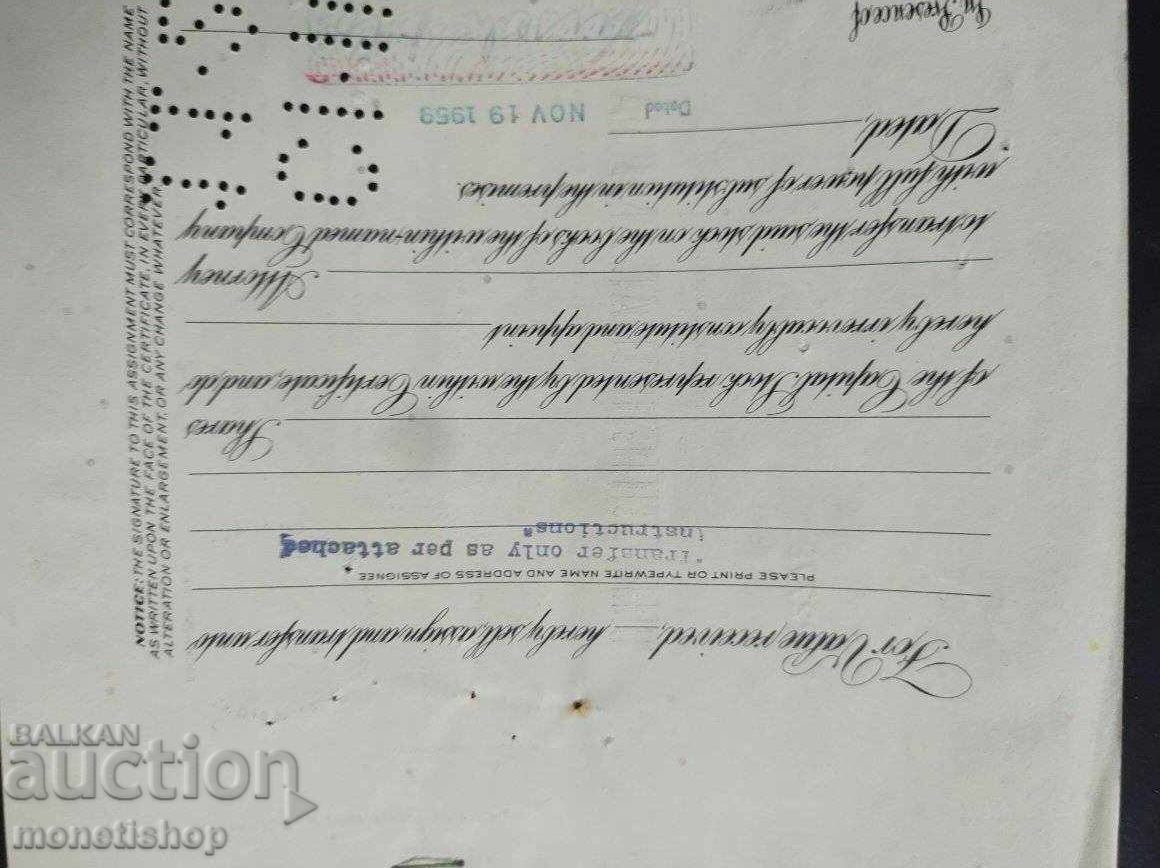 For Value received, hereby sell, assign and transfer unto
PLEASE PRINT OR TYPEWRITE NAME AND ADDRESS OF ASSIGNEE
"Transfer only as per attached
instructions"
Shares
of the Capital Stock represented by the within Certificate, and do
hereby irrevocably constitute and appoint
Attorney
to transfer the said stock on the books of the within-named Company
with full power of substitution in the premises.
Dated,
Dated NOV 19 1959
In Presence of
NOTICE: THE SIGNATURE TO THIS ASSIGNMENT MUST CORRESPOND WITH THE NAME
AS WRITTEN UPON THE FACE OF THE CERTIFICATE, IN EVERY PARTICULAR, WITHOUT
ALTERATION OR ENLARGEMENT, OR ANY CHANGE WHATEVER.
BALKAN
auction
monetishop